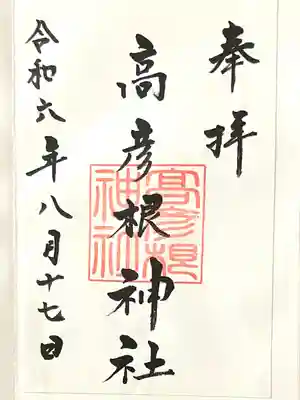 奉拝
高彦根神社
高彦根神社
令和六年八月十七日